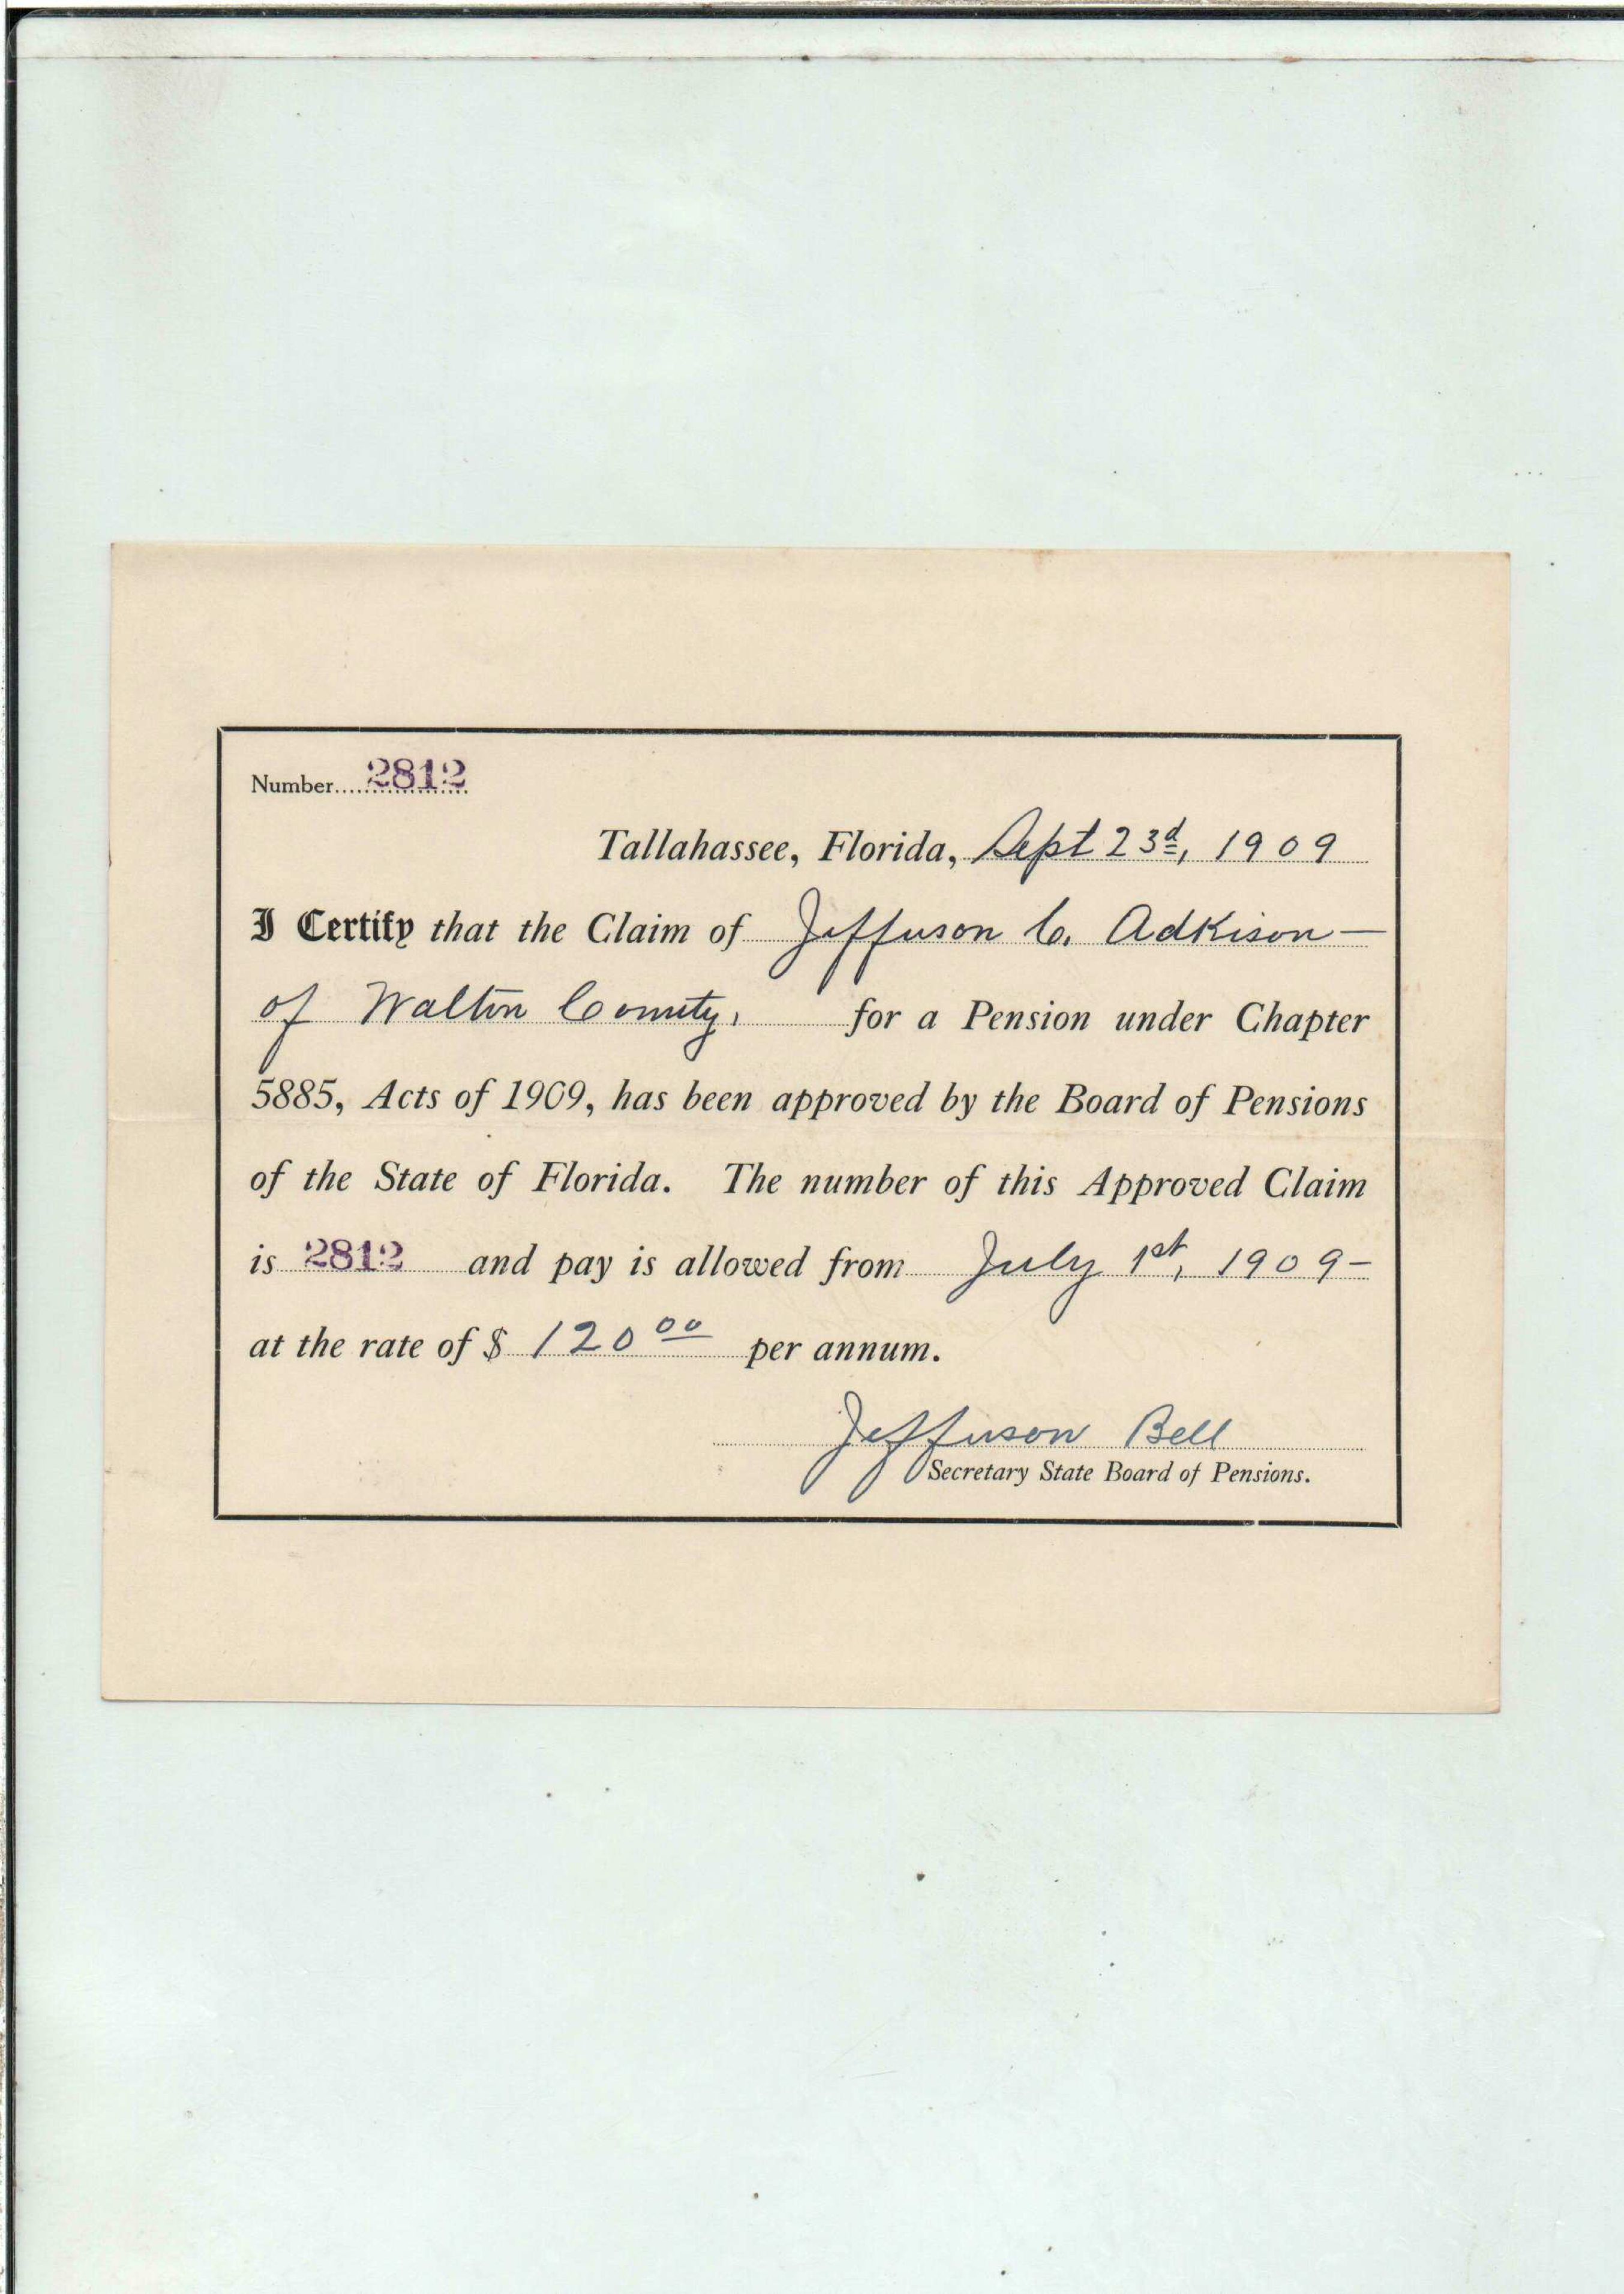 Number....2812
Tallahassee, Florida, Sept 23d, 1909
I Certify that the Claim of Jefferson C. Adkison—
of Walton County, for a Pension under Chapter
5885, Acts of 1909, has been approved by the Board of Pensions
of the State of Florida. The number of this Approved Claim
is 2812 and pay is allowed from July 1st, 1909—
at the rate of $ 120 00 per annum.
Jefferson Bell
Secretary State Board of Pensions.